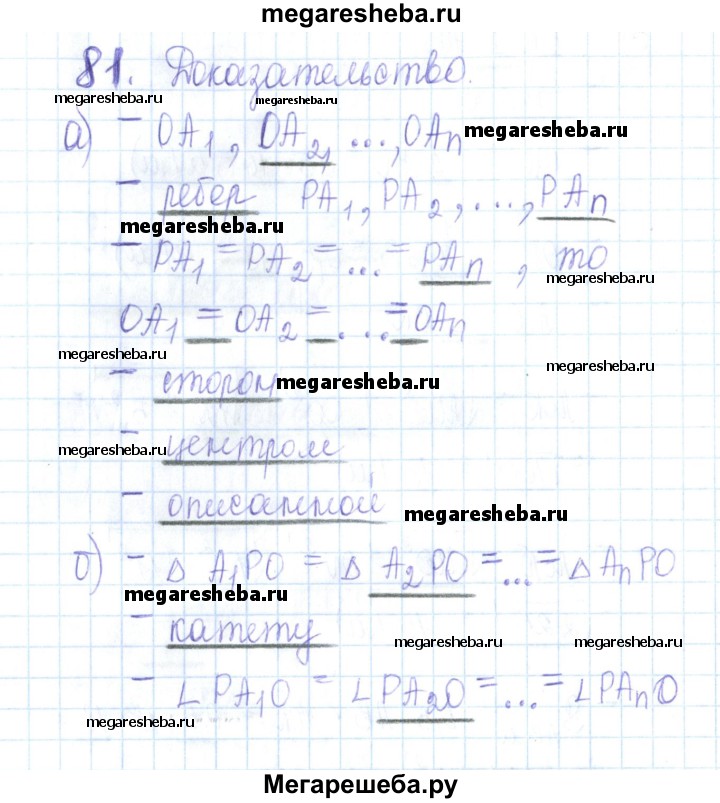 megaresheba.ru
81. Доказательство.
megaresheba.ru megaresheba.ru
а) - OA1, OA2, ..., OAn megaresheba.ru
- ребер PA1, PA2, ..., PAn
megaresheba.ru
- PA1 = PA2 = ... = PAn, то
megaresheba.ru
OA1 = OA2 = ... = OAn
megaresheba.ru megaresheba.ru
- сторон megaresheba.ru
megaresheba.ru - центром
- описанной megaresheba.ru
б) - Δ A1PO = Δ A2PO = ... = Δ AnPO
megaresheba.ru
- катету megaresheba.ru megaresheba.ru
- ∠PA1O = ∠PA2O = ... = ∠PAnO
megaresheba.ru megaresheba.ru
Мегарешеба.ру